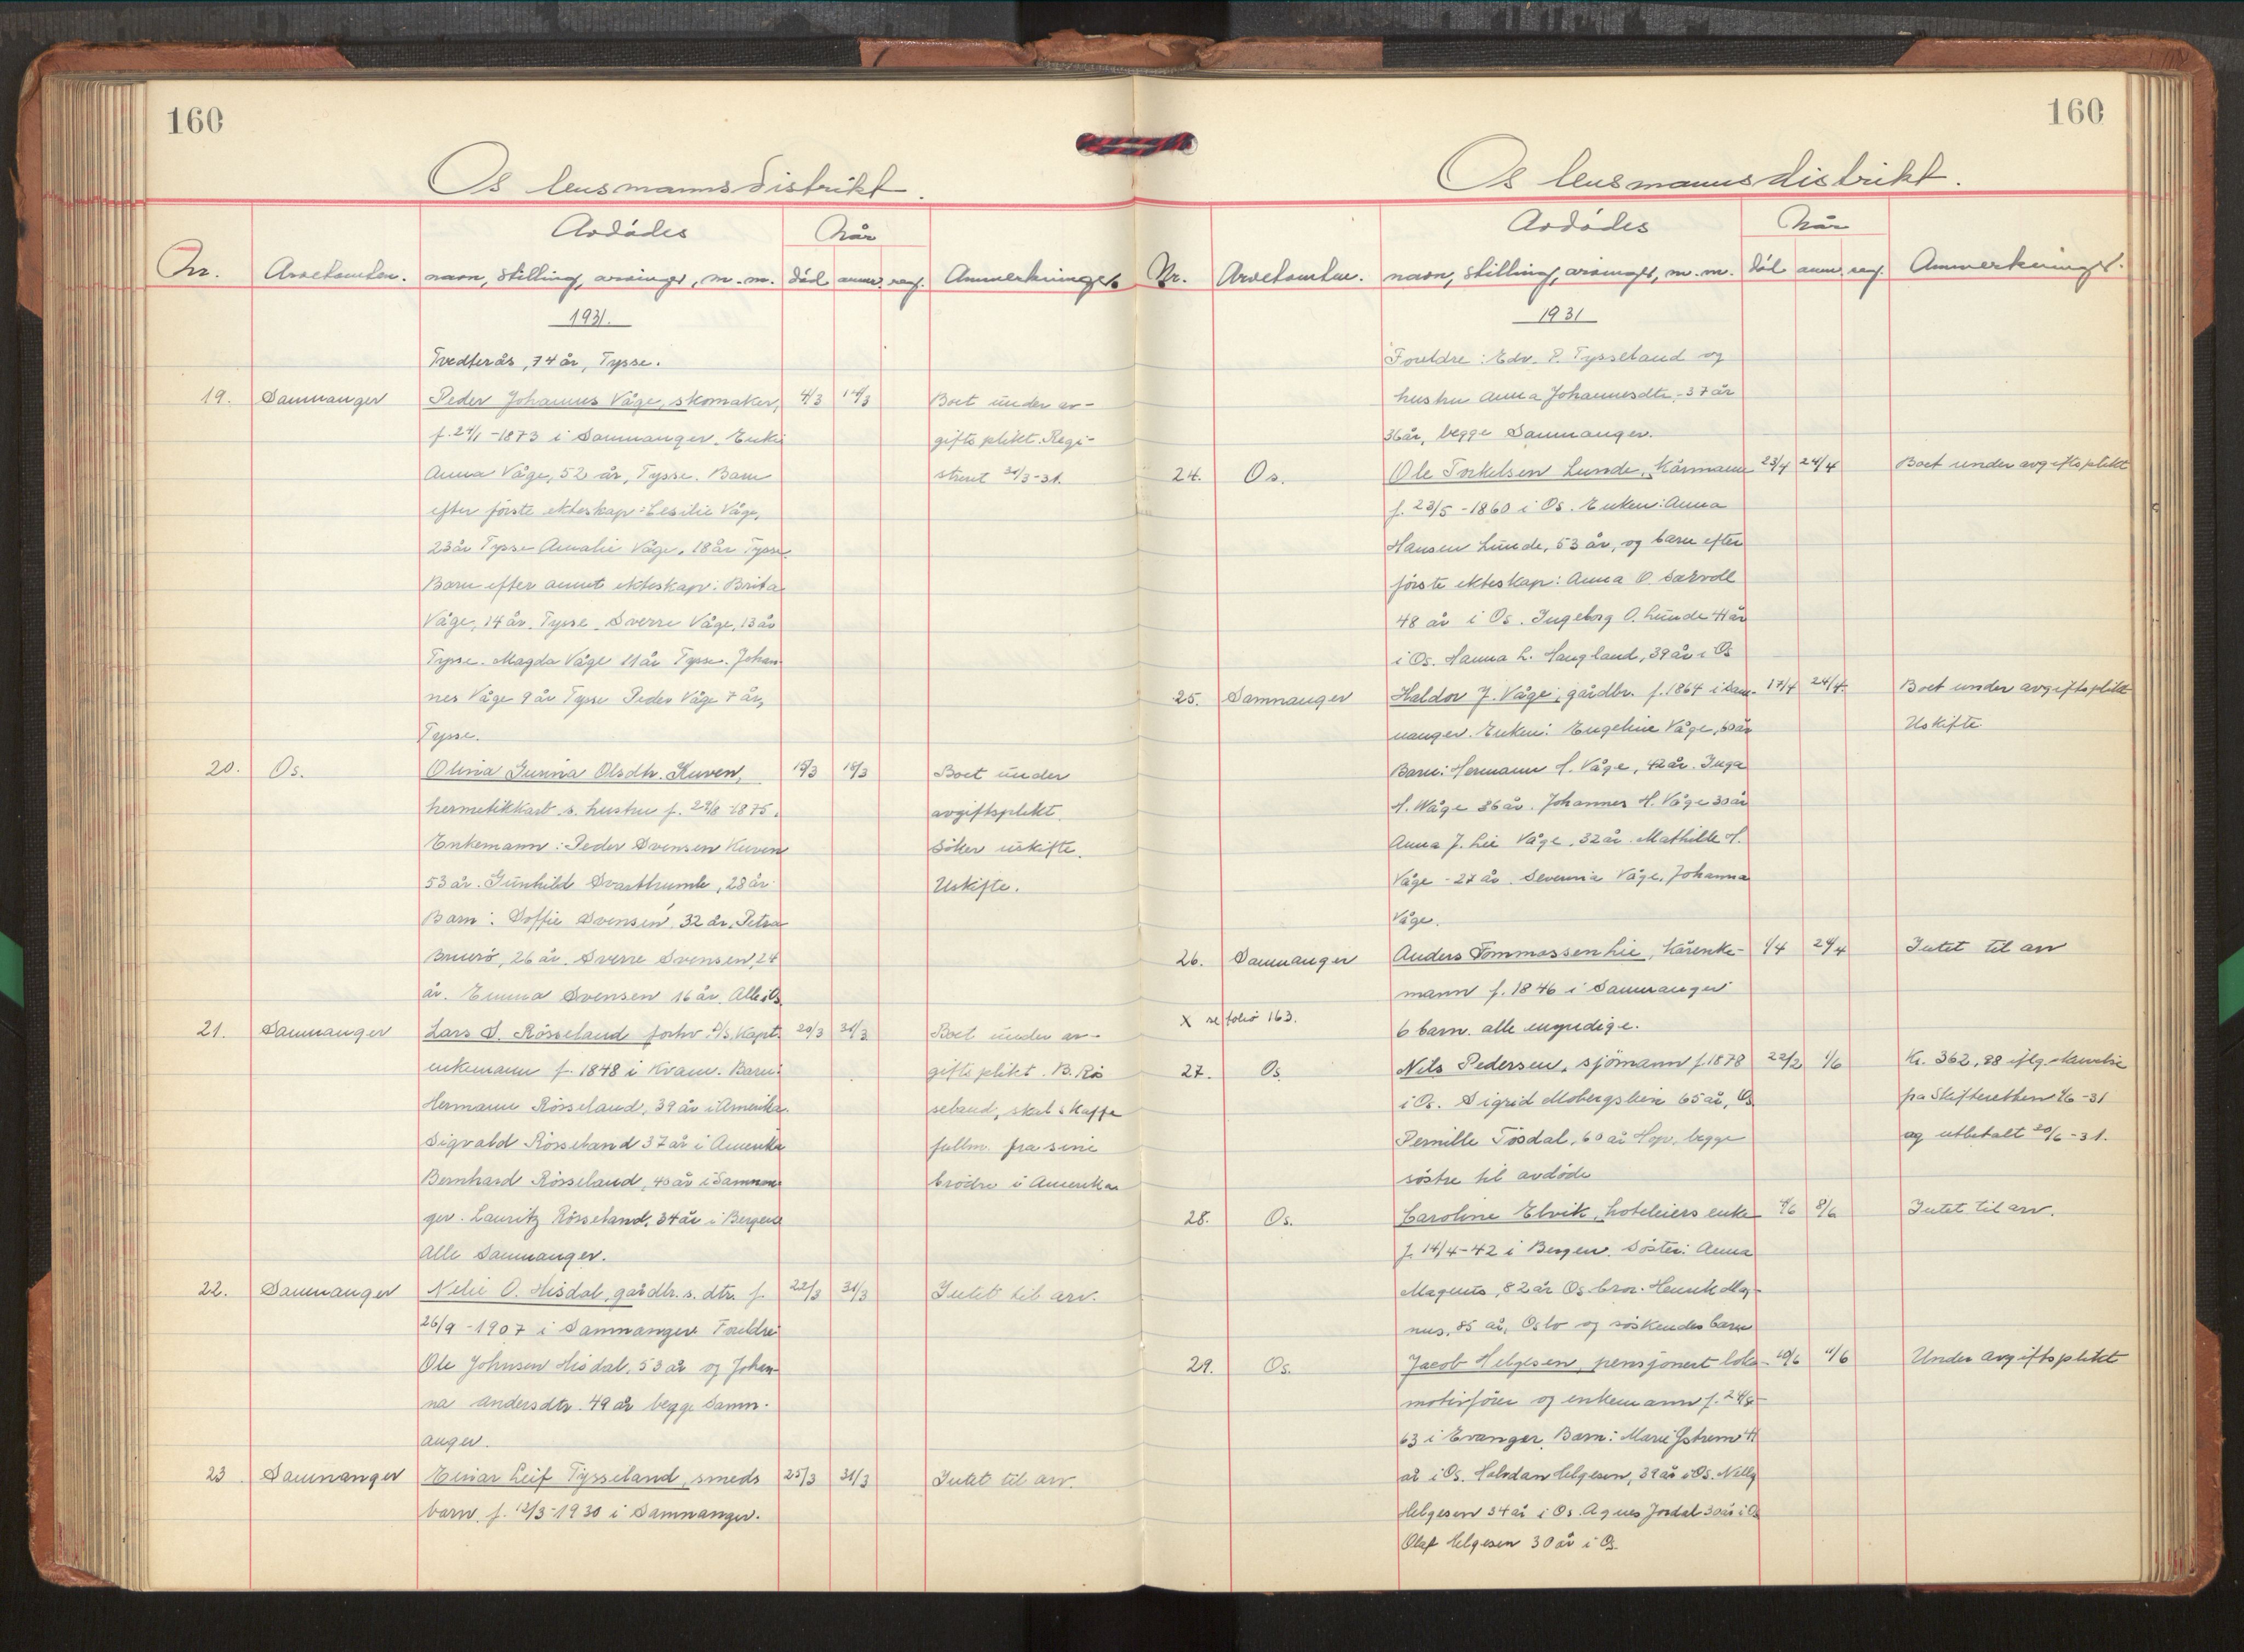 160
Os lensmannsdistrikt.
Nr. Arvetomten. Avdødes navn, stilling, arvinger, m.m. Når død anm. reg. Anmerkninger
1931.
Tvedterås, 74 år, Tysse.
19. Samnanger Peder Johannes Våge, skomaker, 4/3 14/3 Boet under av-
f. 24/1-1873 i Samnanger. Enke giftsplikt. Regi-
Anna Våge, 52 år, Tysse. Barn streret 31/3-31.
efter første ekteskap: Cecilie Våge,
23 år Tysse Amalie Våge, 18 år Tysse.
Barn efter annet ekteskap: Brita
Våge, 14 år, Tysse. Sverre Våge, 13 år
Tysse. Magda Våge 11 år Tysse. Johan-
nes Våge 9 år Tysse Peder Våge 7 år,
Tysse.
20. Os. Olina Gurina Olsdtr. Kuven, 15/3 18/3 Boet under
hermetikkarb. s. hustru f. 29/8-1875. avgiftsplikt.
Enkemann: Peder Svensen Kuven Söker uskifte.
53 år. Gunhild 28 år. Uskifte.
Barn: Soffie Svensen, 32 år, Petra
Bruerö, 26 år. Sverre Svensen, 24
år. Emma Svensen 16 år. Alle i Os
21. Samnanger Lars S. Rösseland forhv. D/S Kapt. 20/3 31/3 Boet under av-
enkemann f. 1848 i Kvam. Barn: giftsplikt. B. Rös
Hermann Rösseland, 39 år i Amerika. seland, skal skaffe
Sigvald Rösseland 37 år i Amerika fullm. fra sine
Bernhard Rösseland, 40 år i Samnan brödre i Amerika
ger. Lauritz Rösseland, 34 år i Bergen
Alle Samnanger.
22. Samnanger Nelie O. Hisdal, gårdbr. s. dtr. f. 22/3 31/3 Intet til arv.
26/9-1907 i Samnanger Foreldre
Ole Johnsen Hisdal, 53 år og Johan-
na Andersdtr. 49 år begge Samn-
anger.
23. Samnanger Einar Leif Tysseland, smeds 25/3 31/3 Intet til arv.
barn f. 12/3-1930 i Samnanger.
160
Os lensmannsdistrikt.
Nr. Arvetomten. Avdødes navn, stilling, arvinger, m.m. Når død anm. reg. Anmerkninger.
1931
Foreldre: Edv. P. Tysseland og
hustru Anna Johannesdtr, 37 år
36 år, begge Samnanger.
24. Os. Ole Torkelsen Lunde, kårmann 23/4 24/4 Boet under avgiftsplikt
f. 23/5-1860 i Os. Enken: Anna
Hansen Lunde, 53 år, og barn efter
første ekteskap: Anna O. Særvoll
48 år i Os. Ingeborg O. Lunde 41 år
i Os. Hanna L. Haugland, 39 år i Os
25. Samnanger Haldor J. Våge, gårdbr. f. 1864 i Sam- 17/4 24/4 Boet under avgiftsplikt
nanger. Enken: Engeline Våge, 60 år Uskifte.
Barn: Hermann H. Våge, 42 år. Inga
H. Wåge 36 år. Johannes H. Våge 30 år
Anna J. Lie Våge, 32 år. Mathilde H.
Våge - 27 år. Severina Våge, Johanna
Våge.
26. Samnanger Anders Tommassen Lie, kårenke- 1/4 29/4 Intet til arv
mann f. 1846 i Samnanger
X se folio 163. 6 barn. alle myndige.
27. Os Nils Pedersen, sjömann f. 1878 22/2 1/6 Kr. 362,88 iflg skrivelse
i Os. Sigrid Mobergslien 65 år, Os fra Skifteretten 4/6-31
Pernille Tösdal, 60 år Hop, begge og utbetalt 20/6-31.
söstre til avdöde
28. Os. Caroline Elvik, hoteleiers enke 4/6 8/6 Intet til arv.
f. 14/4-42 i Bergen. Söster: Anna
Magnus, 82 år Os bror: Henrik Mag-
nus, 85 år, Oslo og söskendes barn
29. Os. Jacob Helgesen, pensjonert loko- 10/6 11/6 Under avgiftsplikt
motivförer og enkemann f. 24/4-
63 i Evanger. Barn: Marie 41
år i Os. Halvdan Helgesen, 39 år i Os. Nelly
Helgesen 34 år i Os. Agnes Jordal 30 år i Os
Olaf Helgesen 30 år i Os.